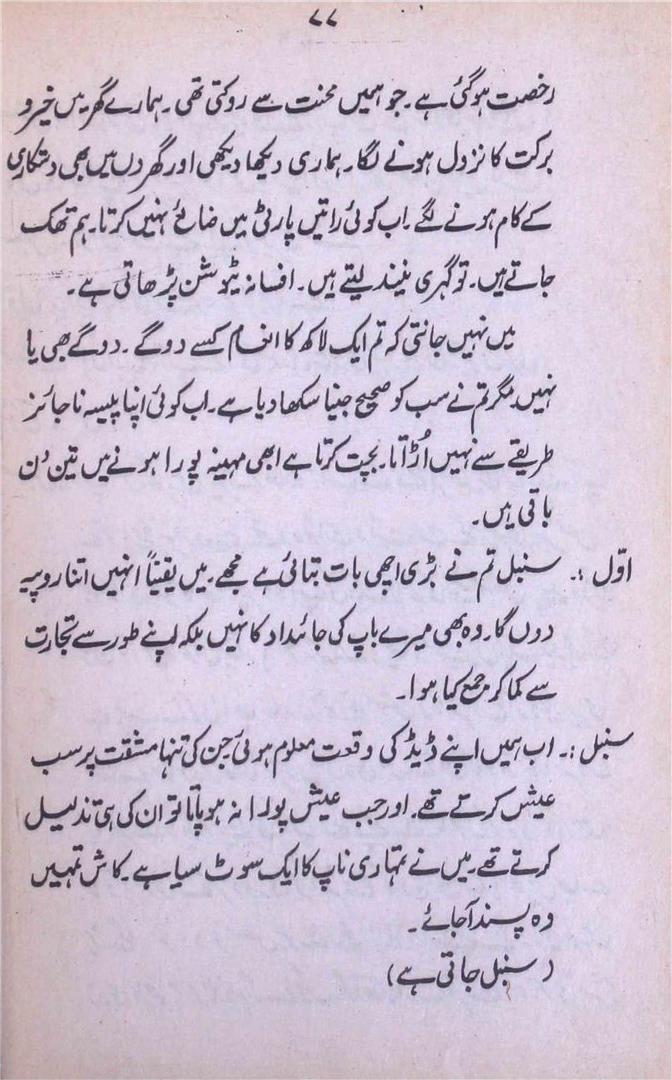 ۷۷
رخصت ہو گئی ہے۔ جو ہمیں محنت سے روکتی تھی۔ ہمارے گھر میں خیر و
برکت کا نزول ہونے لگا۔ ہماری دیکھا دیکھی اور گھروں میں بھی دستکاری
کے کام ہونے لگے۔ اب کوئی راتیں پارٹی میں ضائع نہیں کرتا۔ ہم تھک
جاتے ہیں۔ تو گہری نیند لیتے ہیں۔ افسانہ ٹیوشن پڑھاتی ہے۔
میں نہیں جانتی کہ تم ایک لاکھ کا انعام کسے دو گے۔ دو گے بھی یا
نہیں مگر تم نے سب کو صحیح جینا سکھا دیا ہے۔ اب کوئی اپنا پیسہ ناجائز
طریقے سے نہیں اُڑاتا۔ بچت کرتا ہے ابھی مہینہ پورا ہونے میں تین دن
باقی ہیں۔
اوّل :۔ سنبل تم نے بڑی اچھی بات بتائی ہے مجھے۔ میں یقیناً انہیں اتنا روپیہ
دوں گا۔ وہ بھی میرے باپ کی جائداد کا نہیں بلکہ اپنے طور سے تجارت
سے کما کر جمع کیا ہوا۔
سنبل :۔ اب ہمیں اپنے ڈیڈ کی وقعت معلوم ہوئی جن کی تنہا مشقت پر سب
عیش کرتے تھے۔ اور جب عیش پورا نہ ہو پاتا تو ان کی ہی تذلیل
کرتے تھے۔ میں نے تمہاری ناپ کا ایک سوٹ سیا ہے۔ کاش تمہیں
وہ پسند آجائے۔
(سنبل جاتی ہے)